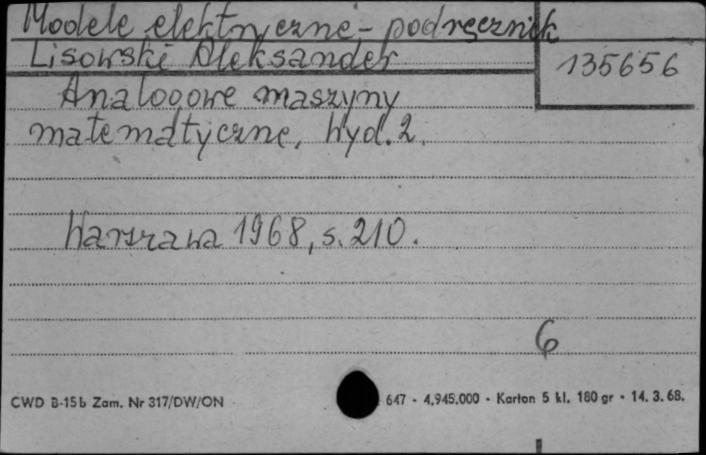 Modele elektryczne - podręcznik
Lisowski Aleksander
135656
Analogowe maszyny
matematyczne, Wyd. 2.
Warszawa 1968, s. 210.
6
CWD B-15b Zam. Nr 317/DW/ON
647 - 4.945.000 - Karton 5 kl. 180 gr - 14. 3. 68.